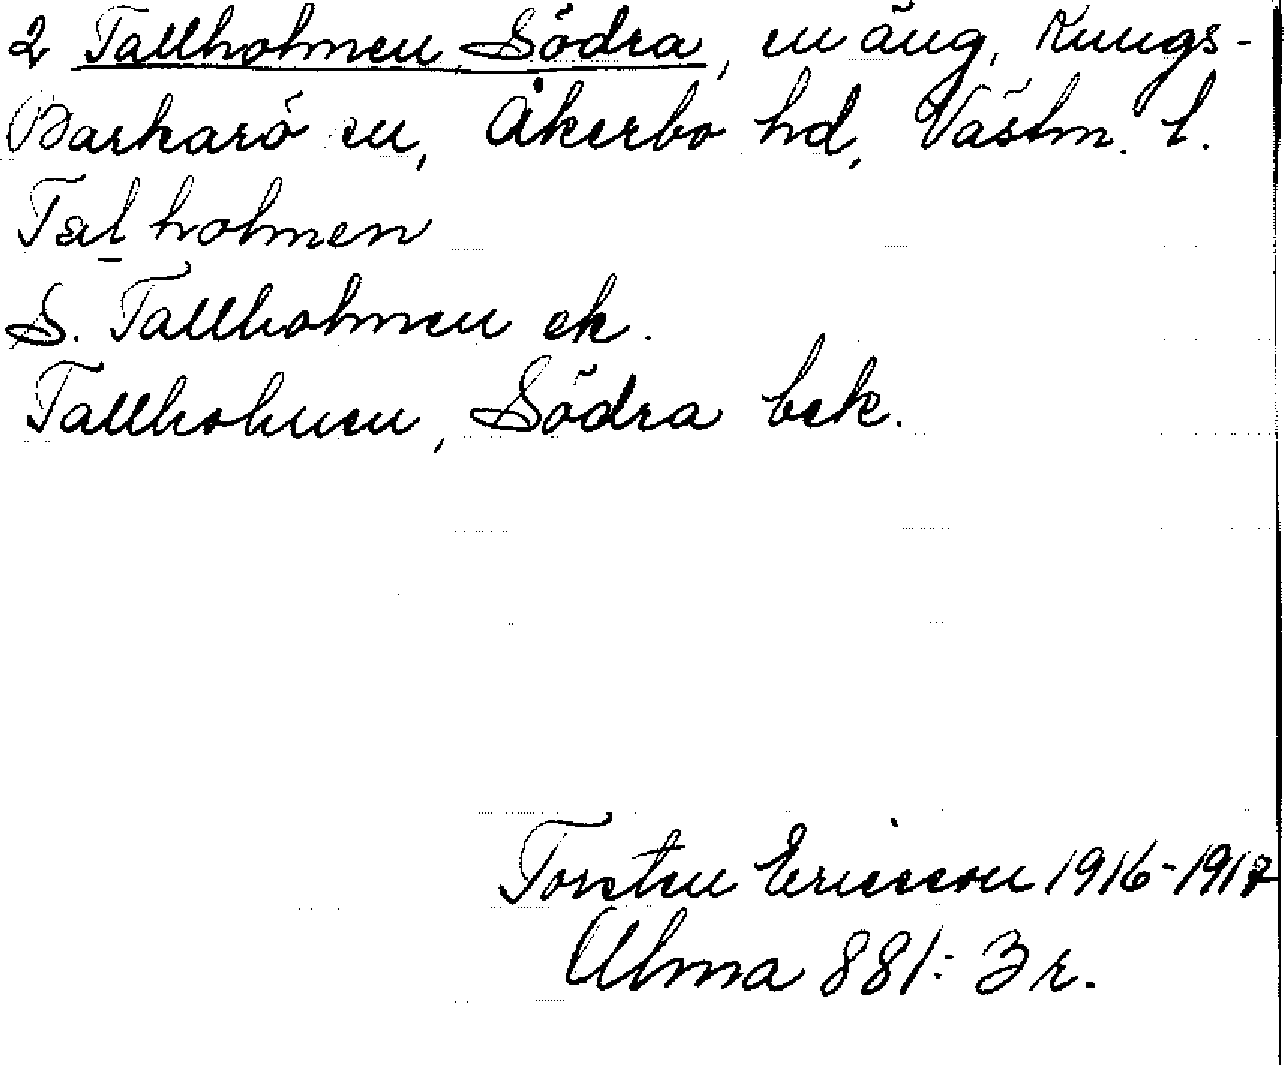 2 Tallholmen, Södra, en äng, Kungs-
Barkarö sn, Åkerbo hd, Västm. l.
Tal holmen
S. Tallholmen ek.
Tallholmen, Södra bek.
Torsten Ericsson 1916-1917
Alma 881: 3 r.